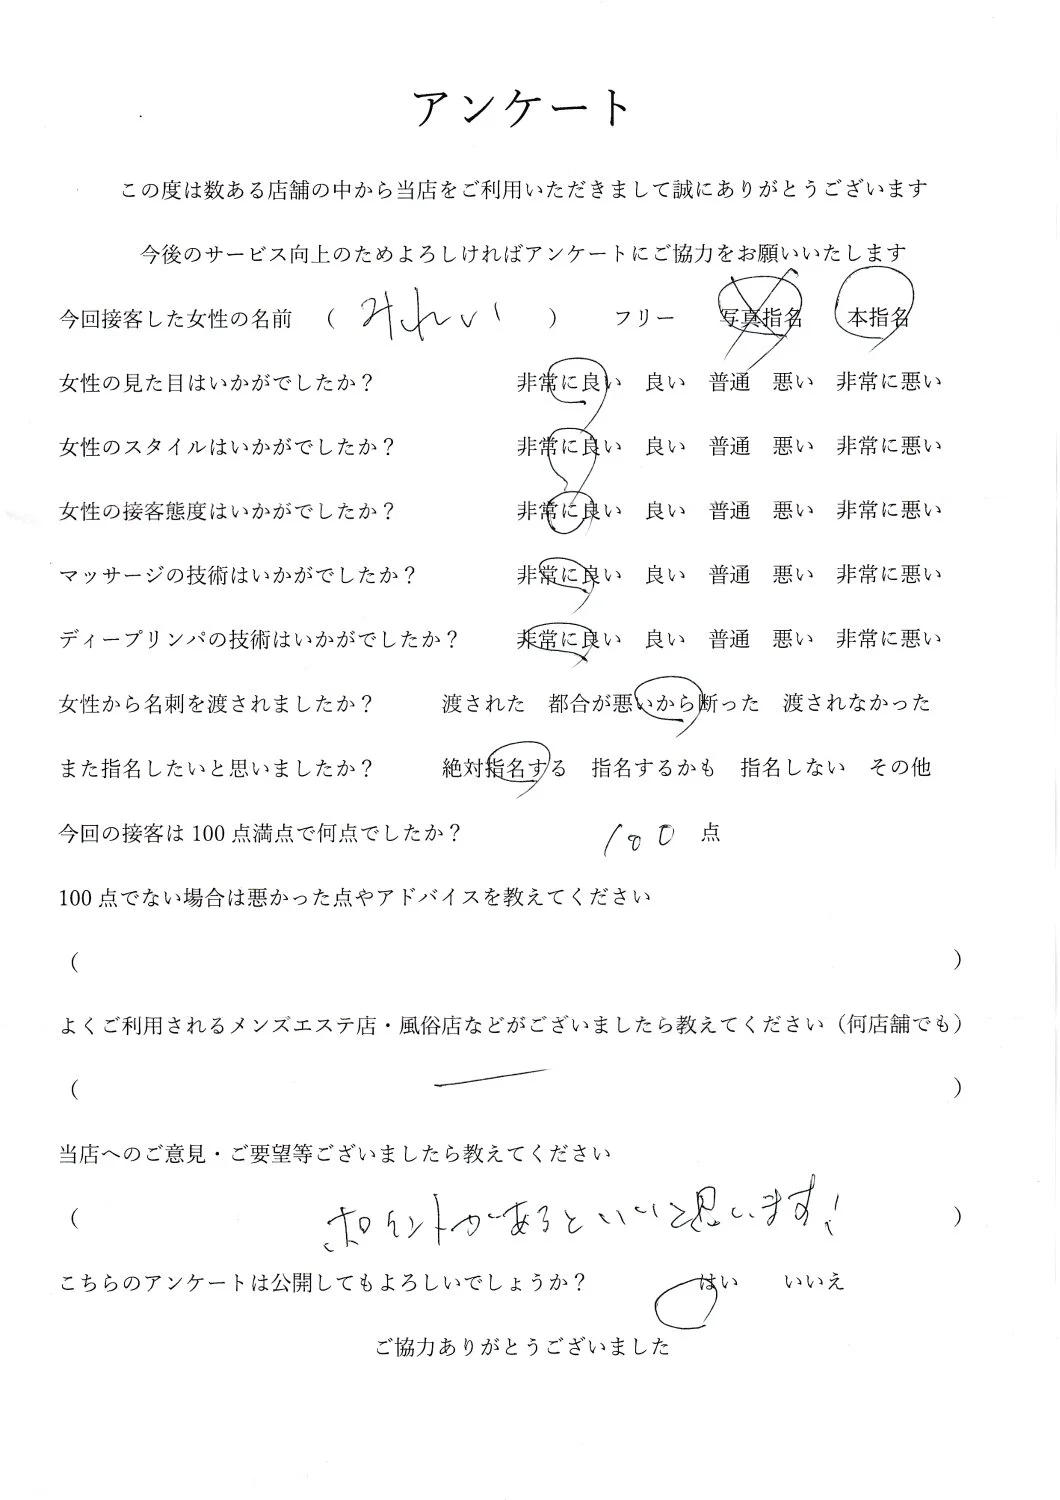 アンケート
この度は数ある店舗の中から当店をご利用いただきまして誠にありがとうございます
今後のサービス向上のためよろしければアンケートにご協力をお願いいたします
今回接客した女性の名前 （ みれい ） フリー 写真指名 本指名
女性の見た目はいかがでしたか？ 非常に良い 良い 普通 悪い 非常に悪い
女性のスタイルはいかがでしたか？ 非常に良い 良い 普通 悪い 非常に悪い
女性の接客態度はいかがでしたか？ 非常に良い 良い 普通 悪い 非常に悪い
マッサージの技術はいかがでしたか？ 非常に良い 良い 普通 悪い 非常に悪い
ディープリンパの技術はいかがでしたか？ 非常に良い 良い 普通 悪い 非常に悪い
女性から名刺を渡されましたか？ 渡された 都合が悪いから断った 渡されなかった
また指名したいと思いましたか？ 絶対指名する 指名するかも 指名しない その他
今回の接客は 100 点満点で何点でしたか？ 100 点
100 点でない場合は悪かった点やアドバイスを教えてください
（ ）
よくご利用されるメンズエステ店・風俗店などがございましたら教えてください（何店舗でも）
（ ー ）
当店へのご意見・ご要望等ございましたら教えてください
（ ポイントがあるといいと思います! ）
こちらのアンケートは公開してもよろしいでしょうか？ はい いいえ
ご協力ありがとうございました